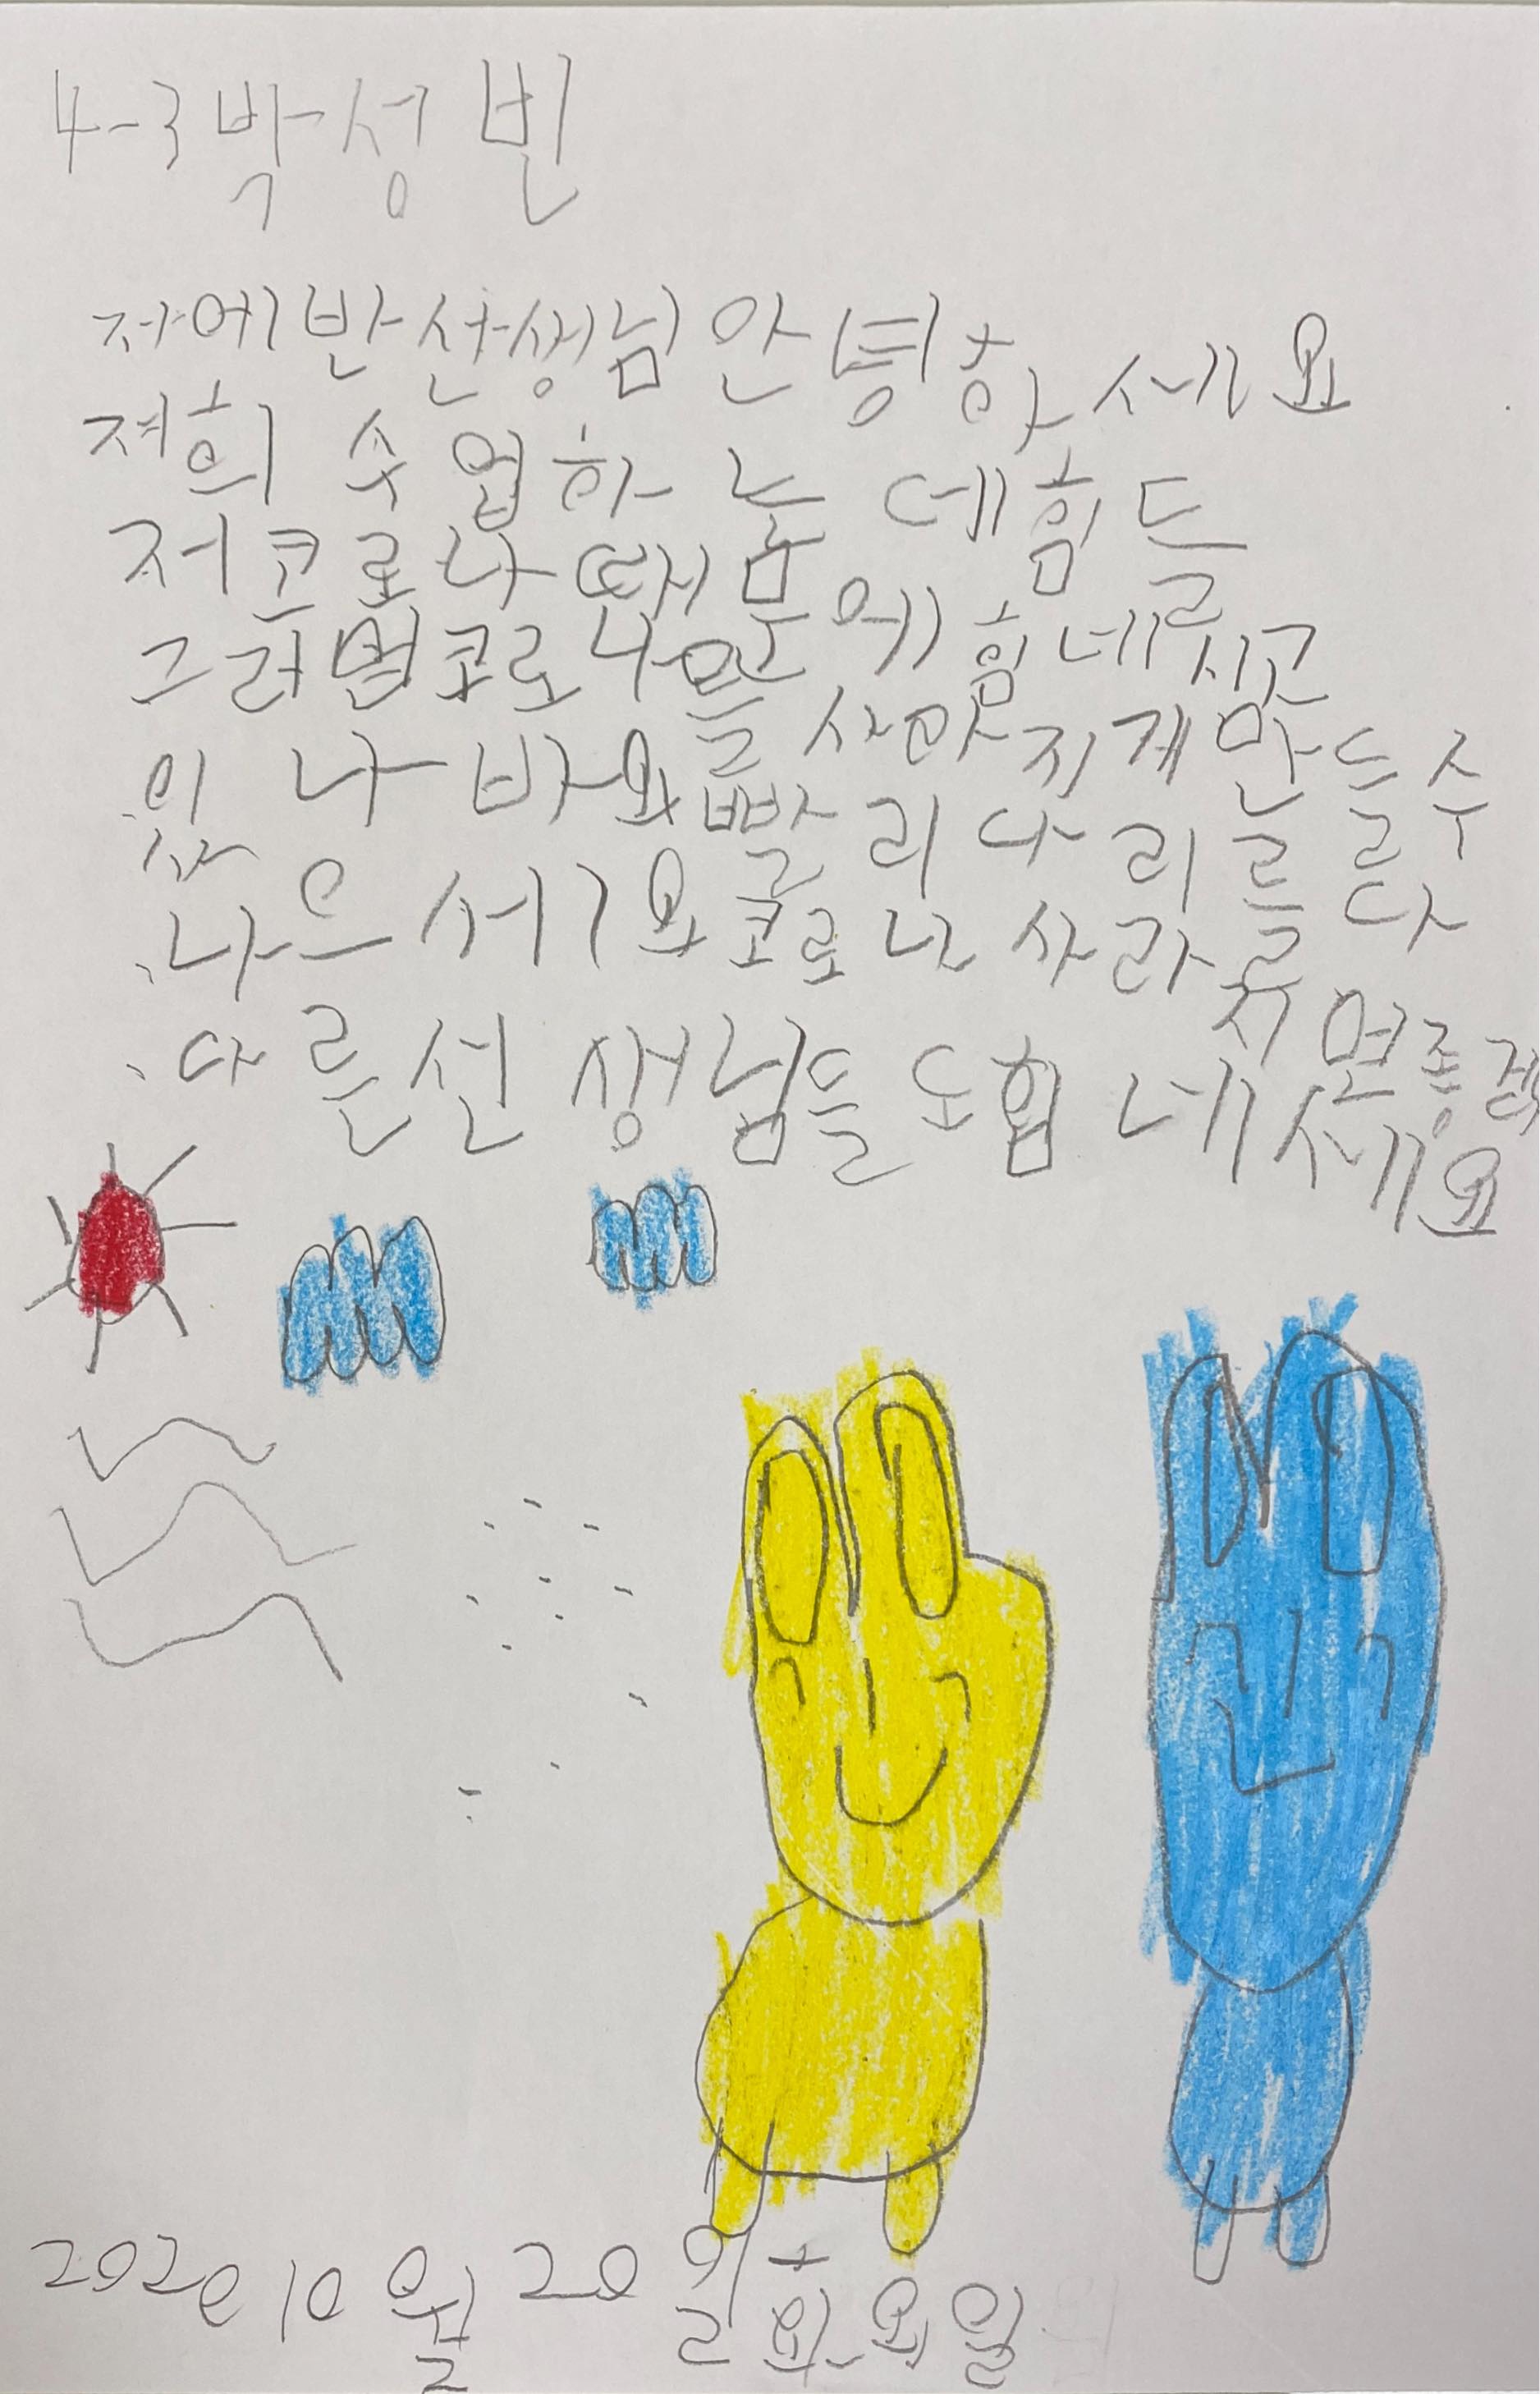 4-3 박성빈
저에반선생님안녕하세요
저희 수업하는데힘드
저코로나때문에힘네시고
그러면코로나을사라지게만드수
있나봐요빨리다리를다
나으세요코로나사라지면좋겠
다른선생님들도힘네세요
2020 10월 20일 화요일